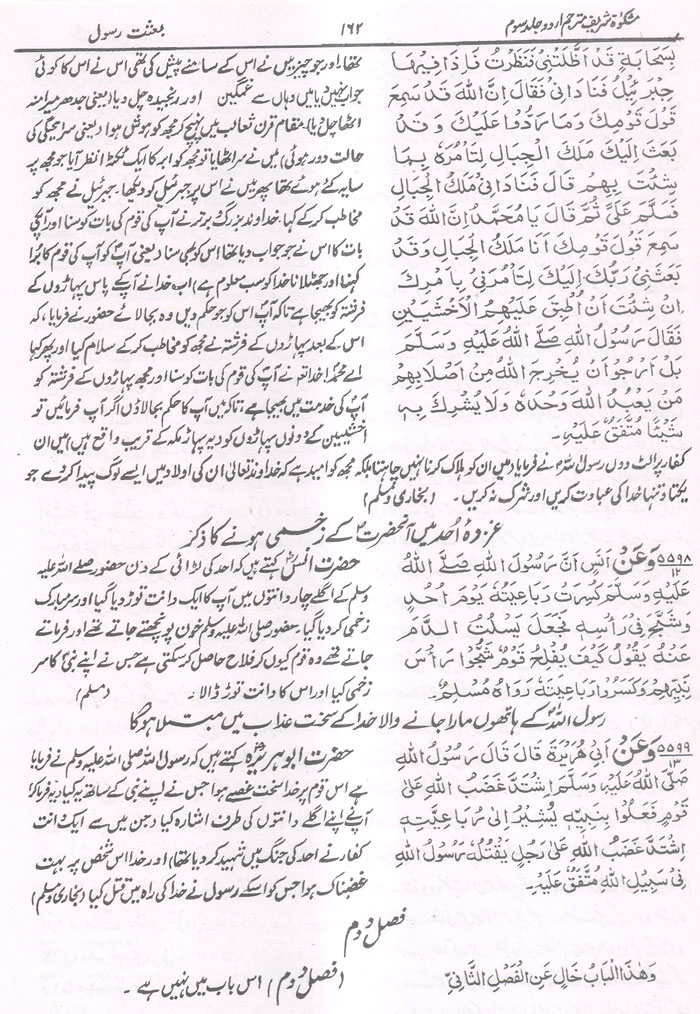 مشکوٰۃ شریف مترجم اردو جلد سوم
۱۶۲
بعثت رسول
بِسَحَابَةٍ قَدْ اَظَلَّتْنِیْ فَنَظَرْتُ فَاِذَا فِیْهَا
جِبْرَئِیْلُ فَنَادَانِیْ فَقَالَ اِنَّ اللهَ قَدْ سَمِعَ
قَوْلَ قَوْمِكَ وَمَا رَدُّوْا عَلَیْكَ وَقَدْ
بَعَثَ اِلَیْكَ مَلَكَ الْجِبَالِ لِتَأْمُرَهٗ بِمَا
شِئْتَ بِهِمْ قَالَ فَنَادَانِیْ مَلَكُ الْجِبَالِ
فَسَلَّمَ عَلَیَّ ثُمَّ قَالَ یَا مُحَمَّدُ اِنَّ اللهَ قَدْ
سَمِعَ قَوْلَ قَوْمِكَ اَنَا مَلَكُ الْجِبَالِ وَقَدْ
بَعَثَنِیْ رَبُّكَ اِلَیْكَ لِتَأْمُرَنِیْ بِاَمْرِكَ
اِنْ شِئْتَ اَنْ اُطْبِقَ عَلَیْهِمُ الْاَخْشَبَیْنِ
فَقَالَ رَسُوْلُ اللهِ صَلَّے اللهُ عَلَیْهِ وَسَلَّمَ
بَلْ اَرْجُوْ اَنْ یُّخْرِجَ اللهُ مِنْ اَصْلَابِهِمْ
مَنْ یَعْبُدُ اللهَ وَحْدَهٗ وَلَا یُشْرِكُ بِهٖ
شَیْئًا مُتَّفَقٌ عَلَیْهِ۔
تھا، اور جو چیز میں نے اس کے سامنے پیش کی تھی اس نے اس کا کوئی
جواب نہیں دیا میں وہاں سے غمگین اور رنجیدہ چل دیا (یعنی جدھر میرا منہ
اٹھا چل دیا) مقام قرن ثعالب میں پہنچ کر مجھ کو ہوش ہوا (یعنی سراسیمگی کی
حالت دور ہوئی) میں نے سر اٹھایا تو مجھ کو ابر کا ایک ٹکڑا نظر آیا جو مجھ پر
سایہ کئے ہوئے تھا پھر میں نے اس پر جبرئیل کو دیکھا۔ جبرئیل نے مجھ کو
مخاطب کرکے کہا، خداوند بزرگ برتر نے آپ کی قوم کی بات کو سنا اور آپکی
بات کا اس نے جو جواب دیا تھا اس کو بھی سنا (یعنی آپ کو آپ کی قوم کا برا
کہنا اور جھٹلانا خدا کو سب معلوم ہے) اب خدا نے آپکے پاس پہاڑوں کے
فرشتہ کو بھیجا ہے تاکہ آپ اس کو جو حکم دیں وہ بجا لائے حضور نے فرمایا، کہ
اس کے بعد پہاڑوں کے فرشتہ نے مجھ کو مخاطب کرکے سلام کیا اور پھر کہا
اے محمدؐ! خدا نے آپ کی قوم کی بات کو سنا اور مجھ پہاڑوں کے فرشتہ کو
آپ کی خدمت میں بھیجا ہے، تاکہ میں آپ کا حکم بجا لاؤں اگر آپ فرمائیں تو
اخشبین کے دونوں پہاڑوں کو دیہ پہاڑ مکہ کے قریب واقع ہیں) میں ان
کفار پر الٹ دوں رسول اللہؐ نے فرمایا، میں ان کو ہلاک کرنا نہیں چاہتا بلکہ مجھ کو امید ہے کہ خداوند تعالیٰ ان کی اولاد میں ایسے لوگ پیدا کردے جو
یکتا و تنہا خدا کی عبادت کریں اور شرک نہ کریں۔ (بخاری و مسلم)
غزوۂ احد میں آنحضرتؐ کے زخمی ہونے کا ذکر
۵۵۹۸
۱۲
وَعَنْ اَنَسٍ اَنَّ رَسُوْلَ اللهِ صَلَّے اللهُ
عَلَیْهِ وَسَلَّمَ كُسِرَتْ رَبَاعِیَتُهٗ یَوْمَ اُحُدٍ
وَشُجَّ فِیْ رَأْسِهٖ فَجَعَلَ یَسْلُتُ الدَّمَ
عَنْهُ یَقُوْلُ كَیْفَ یُفْلِحُ قَوْمٌ شَجُّوْا رَأْسَ
نَبِیِّهِمْ وَكَسَرُوْا رَبَاعِیَتَهٗ رَوَاهُ مُسْلِمٌ۔
حضرت انسؓ کہتے ہیں کہ احد کی لڑائی کے دن حضور صلے اللہ علیہ
وسلم کے اگلے چار دانتوں میں آپ کا ایک دانت توڑ دیا گیا اور سر مبارک
زخمی کر دیا گیا۔ حضور صلی اللہ علیہ وسلم خون پونچھتے جاتے تھے اور فرماتے
جاتے تھے وہ قوم کیوں کر فلاح حاصل کر سکتی ہے جس نے اپنے نبیؐ کا سر
زخمی کیا اور اس کا دانت توڑ ڈالا۔ (مسلم)
رسول اللہؐ کے ہاتھوں مارا جانے والا خدا کے سخت عذاب میں مبتلا ہوگا
۵۵۹۹
۱۳
وَعَنْ اَبِیْ هُرَیْرَةَ قَالَ قَالَ رَسُوْلُ اللهِ
صَلَّی اللهُ عَلَیْهِ وَسَلَّمَ اِشْتَدَّ غَضَبُ اللهِ عَلٰی
قَوْمٍ فَعَلُوْا بِنَبِیِّهٖ یُشِیْرُ اِلٰی رَبَاعِیَتِهٖ
اِشْتَدَّ غَضَبُ اللهِ عَلٰی رَجُلٍ یَقْتُلُهٗ رَسُوْلُ اللهِ
فِیْ سَبِیْلِ اللهِ مُتَّفَقٌ عَلَیْهِ۔
حضرت ابو ہریرہؓ کہتے ہیں کہ رسول اللہ صلی اللہ علیہ وسلم نے فرمایا
ہے اس قوم پر خدا سخت غصے ہوا جس نے اپنے نبی کے ساتھ یہ کیا (یہ فرماکر)
آپنے اپنے اگلے دانتوں کی طرف اشارہ کیا (جن میں سے ایک دانت
کفار نے احد کی جنگ میں شہید کر دیا تھا) اور خدا اس شخص پر بہت
غضبناک ہوا جس کو اسکے رسول نے خدا کی راہ میں قتل کیا (بخاری و مسلم)
فصل دوم
وَهٰذَا الْبَابُ خَالٍ عَنِ الْفَصْلِ الثَّانِیْ۔
(فصل دوم) اس باب میں نہیں ہے۔